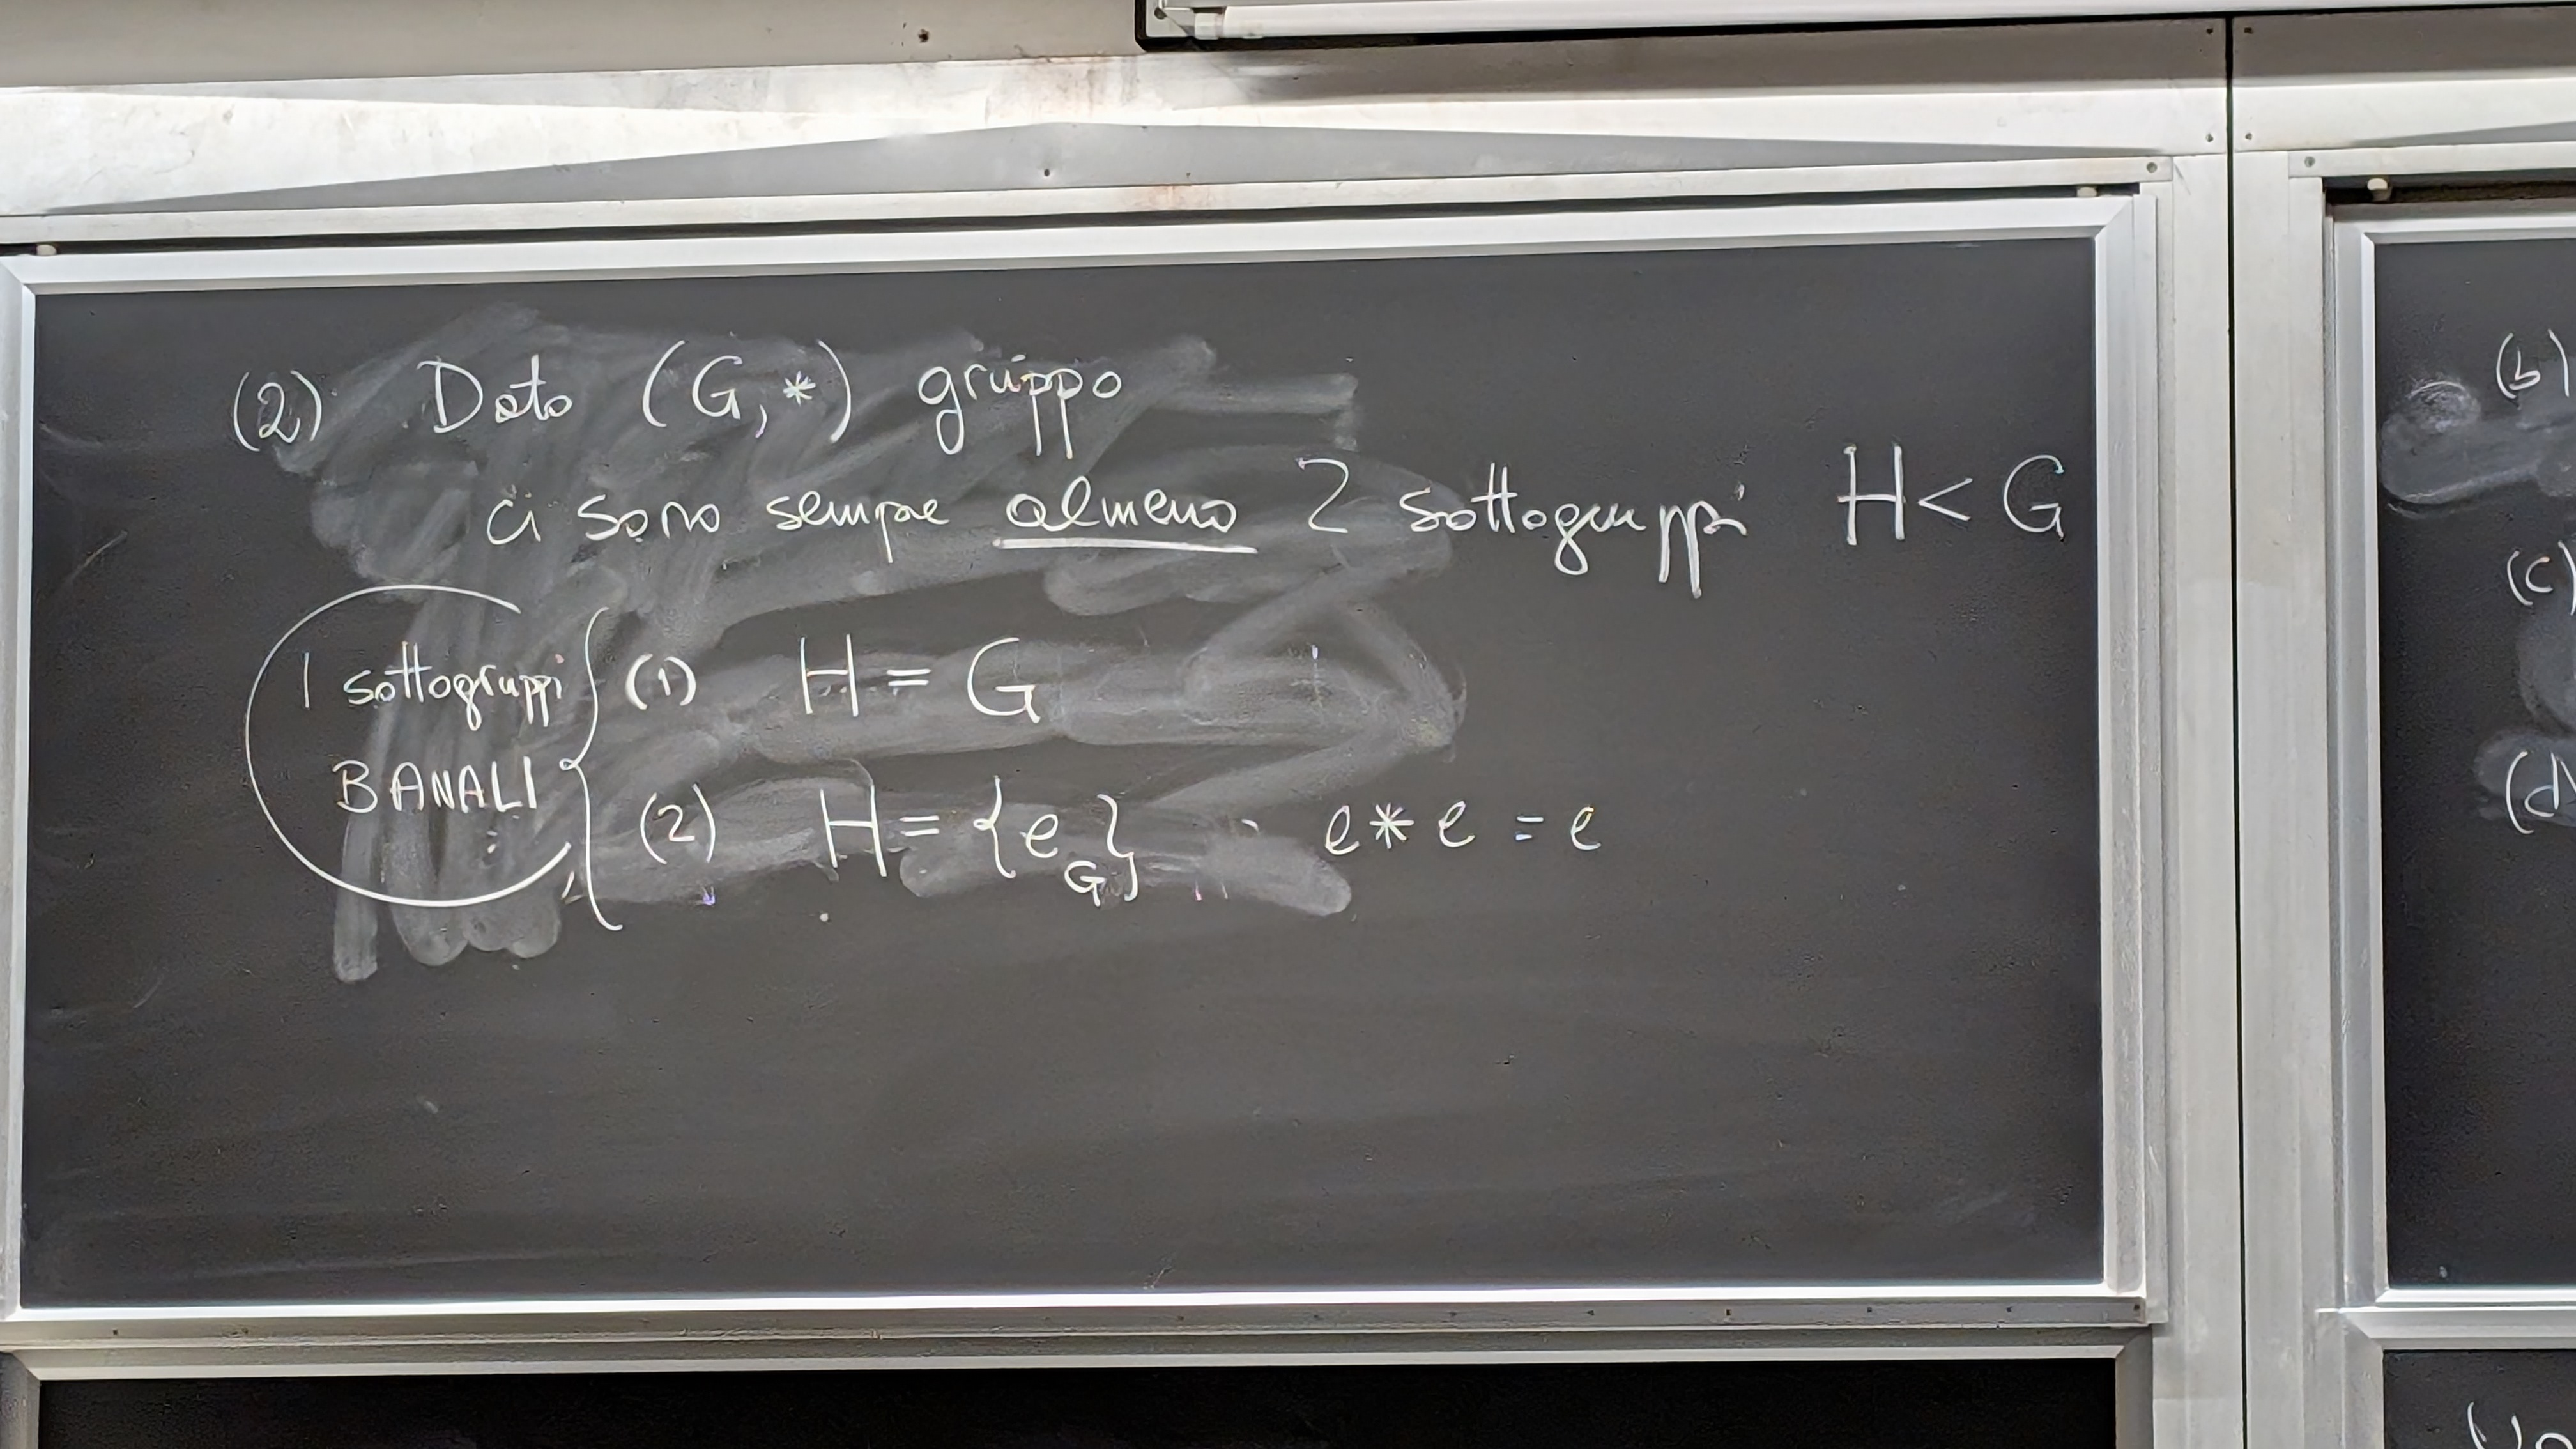 (2) Dato (G, *) gruppo
ci sono sempre almeno 2 sottogruppi H < G
I sottogruppi (1) H = G
BANALI (2) H = {e_G} e * e = e
(b)
(c)
(d